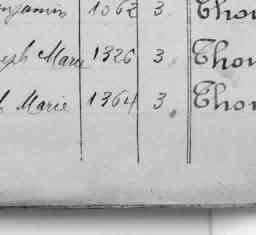 njamin 1062 3. Thon
seph Marie 1326 3. Thon
h Marie 1364 3. Thon